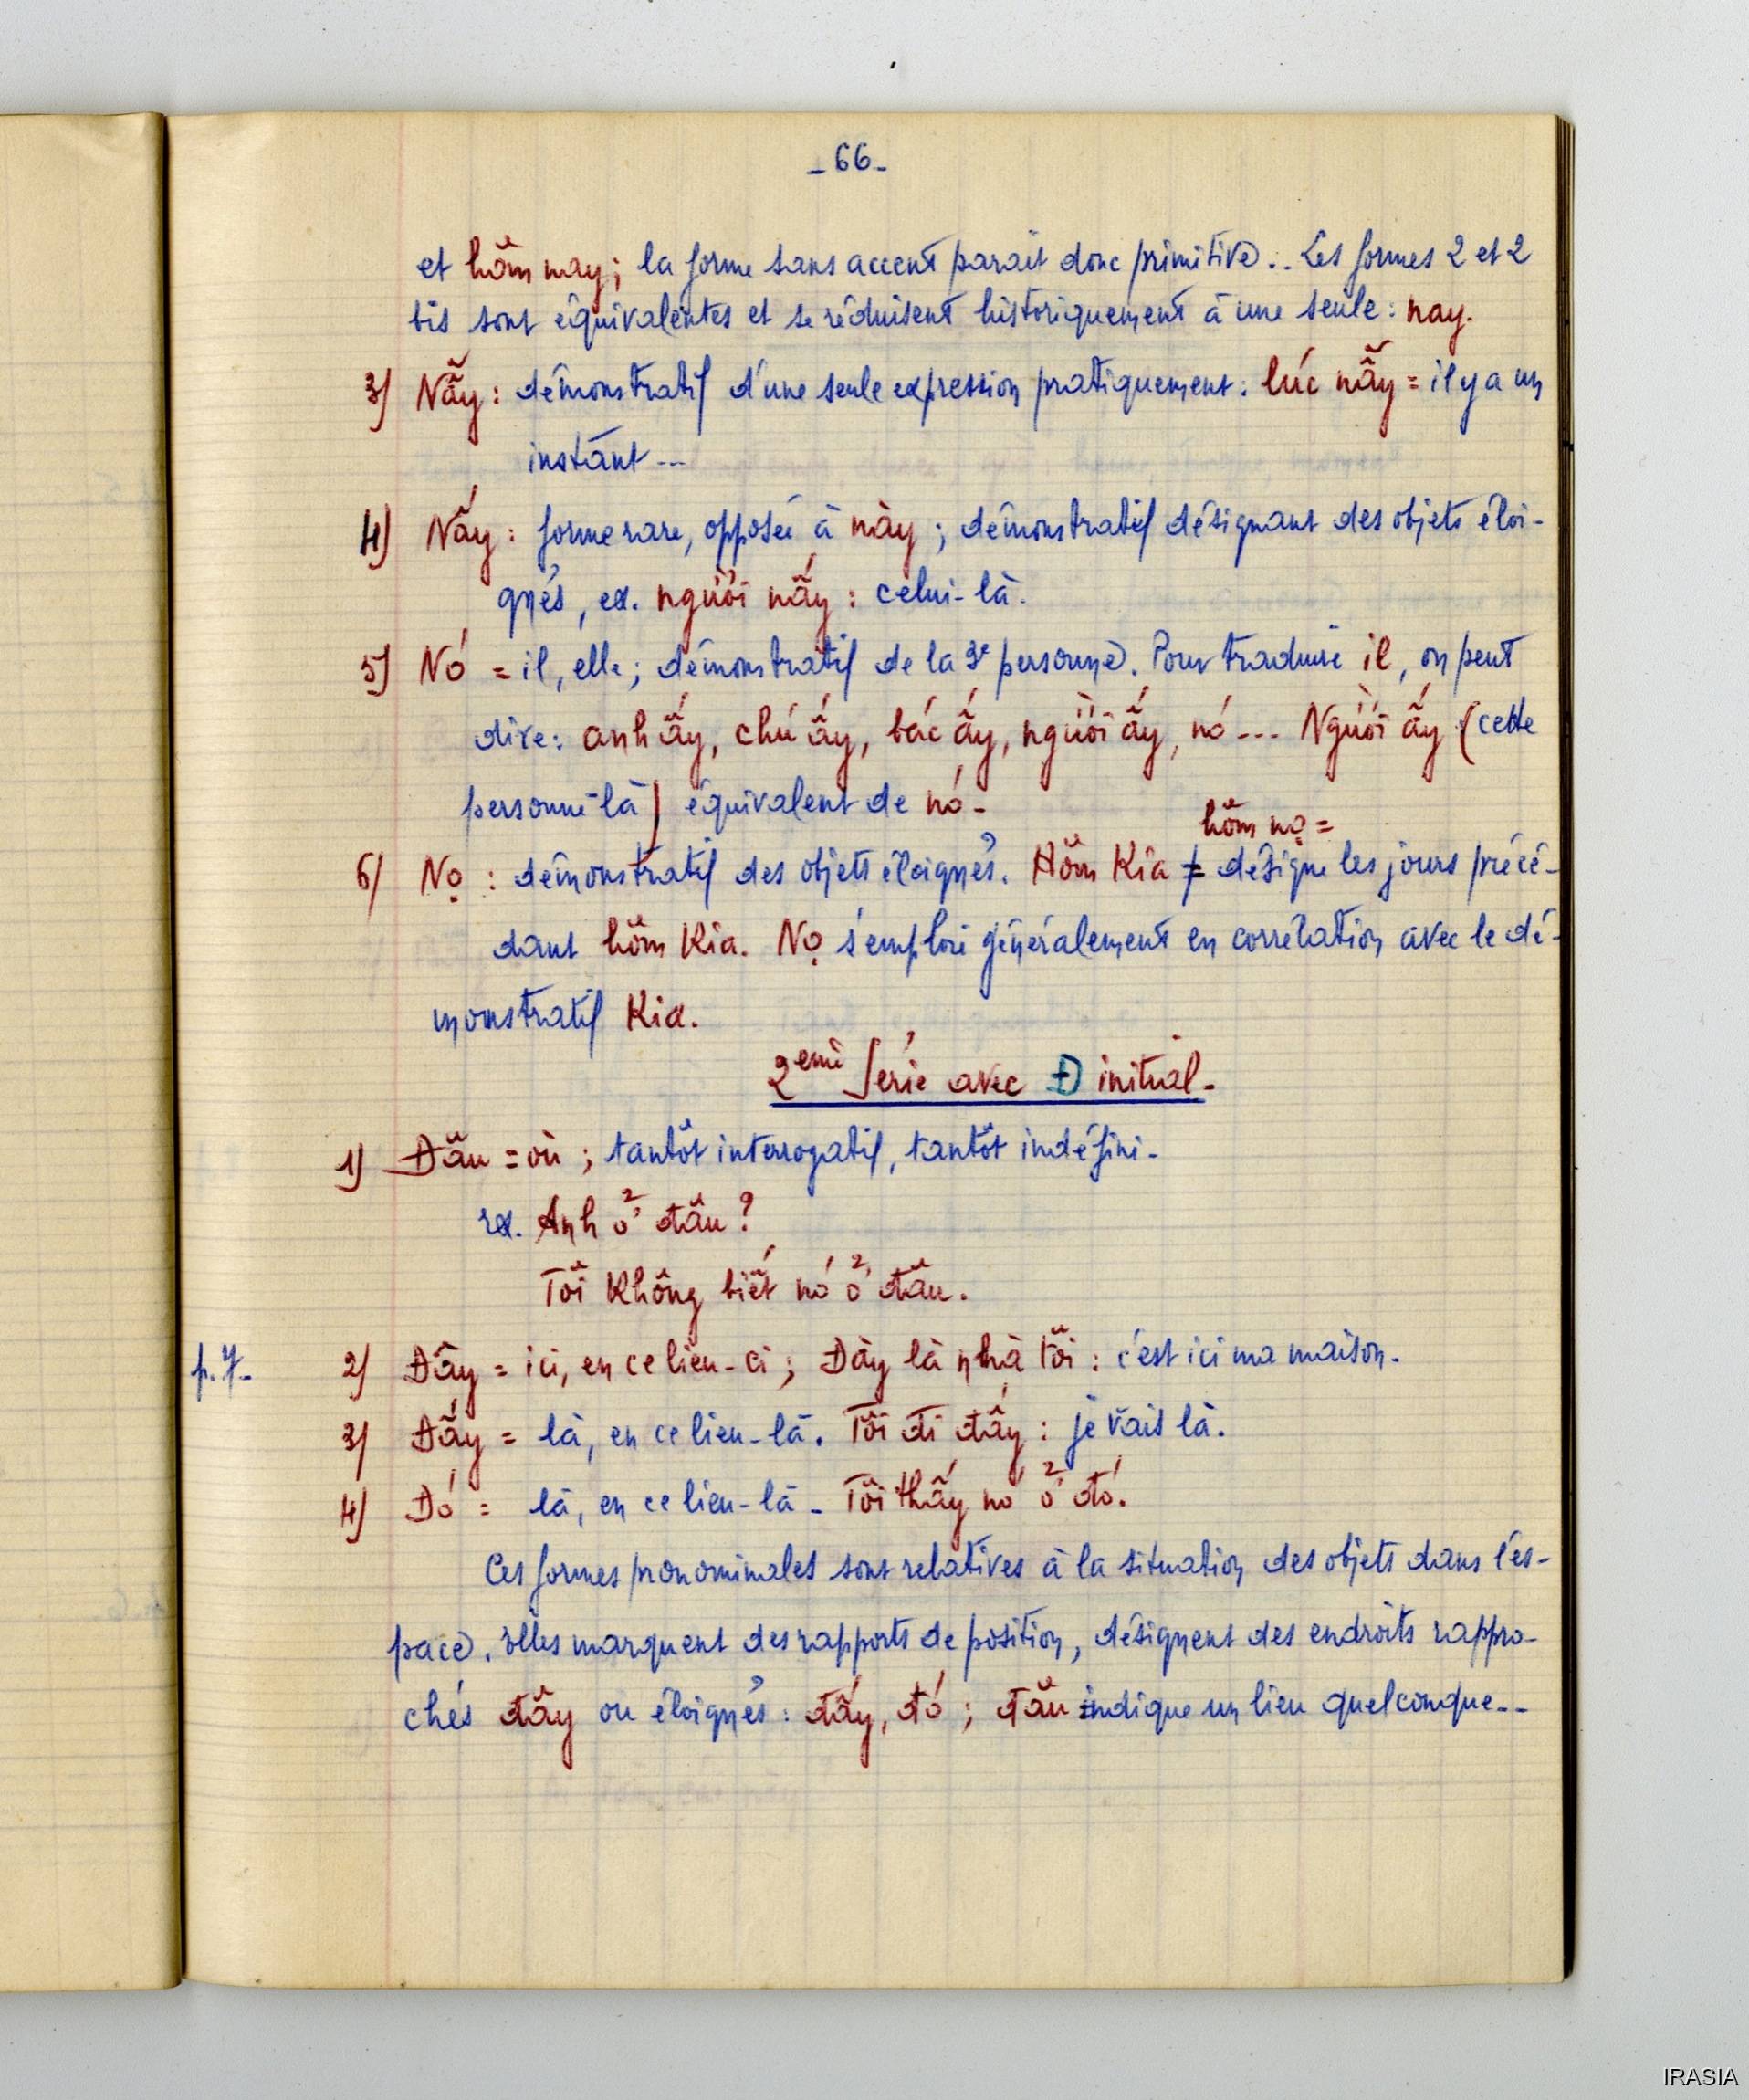 _ 66 _
et hôm nay ; la forme sans accent parait donc primitive.. Les formes 2 et 2
bis sont équivalentes et se réduisent historiquement à une seule : nay.
3) Nẫy : démonstratif d'une seule expression pratiquement : lúc nẫy = il y a un
instant ---
4) Nấy : forme rare, opposée à này ; démonstratif désignant des objets éloi-
gnés, ex. người nấy : celui-là.
5) Nó = il, elle ; démonstratif de la 3e personne. Pour traduire il, on peut
dire : anh ấy, chú ấy, bác ấy, người ấy, nó --- Người ấy (cette
personne-là) équivalent de nó -
hôm nọ =
6) Nọ : démonstratif des objets éloignés. Hôm Kia ≠ désigne les jours précé-
dant hôm Kia. Nọ s'emploie généralement en corrélation avec le dé-
monstratif Kia.
2eme Série avec Đ initial -
1) Đâu = où ; tantôt interrogatif, tantôt indéfini -
ex. Anh ở đâu ?
Tôi Không biết nó ở đâu.
p. 7- 2) Đây = ici, en ce lieu-ci ; Đây là nhà tôi : c'est ici ma maison.
3) Đấy = là, en ce lieu-là. Tôi đi đấy : je vais là.
4) Đó = là, en ce lieu-là - Tôi thấy nó ở đó.
Ces formes pronominales sont relatives à la situation des objets dans l'es-
pace. Elles marquent des rapports de position, désignent des endroits rappro-
chés đây ou éloignés : đấy, đó ; đâu indique un lieu quelconque --
IRASIA